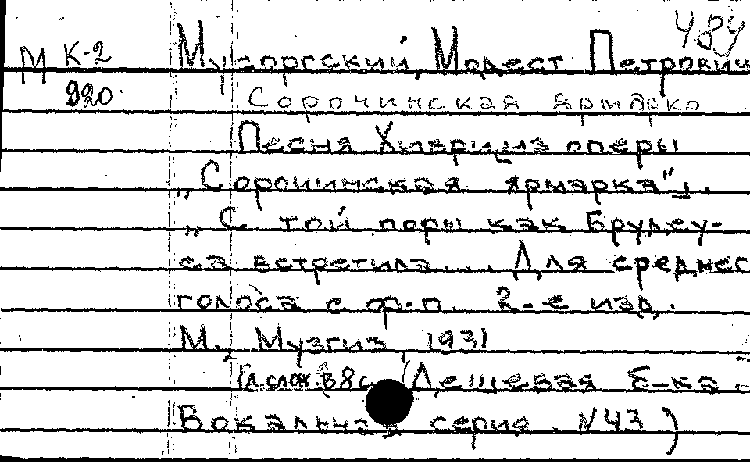 484
М К-2 Мусоргский, Модест Петрович
920. Сорочинская ярмарка
Песня Хиври из оперы
„Сорочинская ярмарка".
„С той поры как Брудеу-
са встретила... Для среднег
голоса с ф-п. 2-е изд.
М., Музгиз, 1931
(1 слож. в 8с. (Дешевая б-ка.
Вокальная серия. N43)